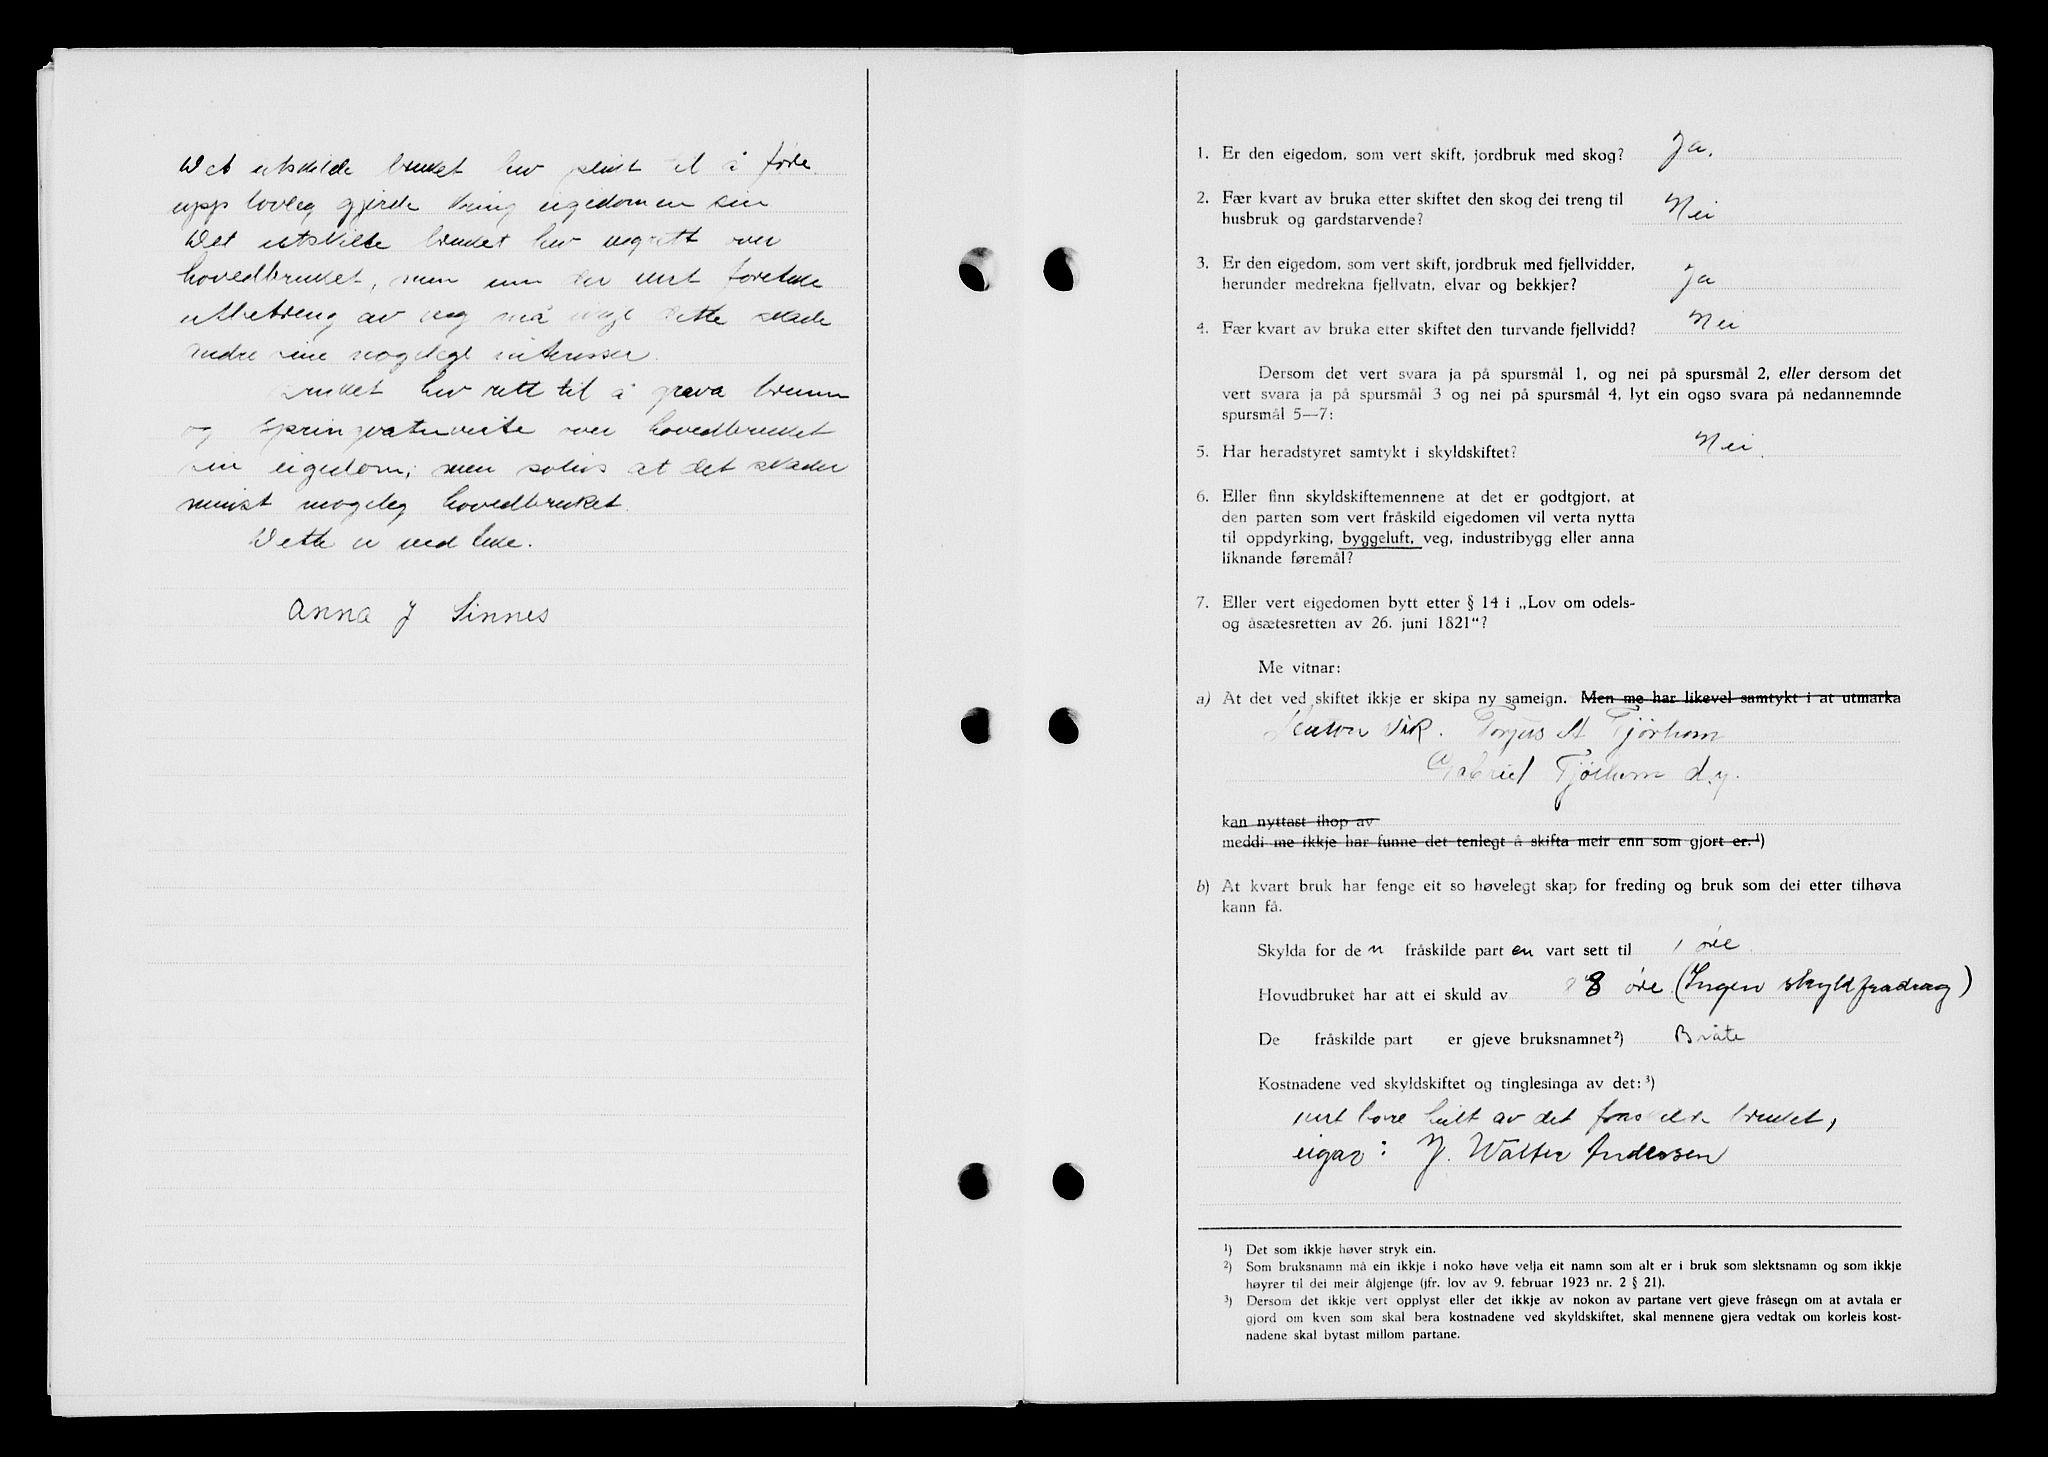 Det utskilde bruket hev plikt til å føre
upp lovleg gjerde kring eigedomen sin
Det utskilte bruket hev vegrett over
hovedbruket, men um der vert foreteke
utbetring av veg må ikkje dette skade
andre sine mogelege interesser.
bruket hev rett til å grava brunn
og springvatn over hovedbruket
sin eigedom; men soleis at det skader
minst mogeleg hovedbruket.
Dette er ved like.
Anna J Sinnes
1. Er den eigedom, som vert skift, jordbruk med skog? Ja.
2. Fær kvart av bruka etter skiftet den skog dei treng til
husbruk og gardstarvende? Nei
3. Er den eigedom, som vert skift, jordbruk med fjellvidder,
herunder medrekna fjellvatn, elvar og bekkjer? Ja
4. Fær kvart av bruka etter skiftet den turvande fjellvidd? Nei
Dersom det vert svara ja på spursmål 1, og nei på spursmål 2, eller dersom det
vert svara ja på spursmål 3 og nei på spursmål 4, lyt ein ogso svara på nedannemnde
spursmål 5—7:
5. Har heradstyret samtykt i skyldskiftet? Nei.
6. Eller finn skyldskiftemennene at det er godtgjort, at
den parten som vert fråskild eigedomen vil verta nytta
til oppdyrking, byggeluft, veg, industribygg eller anna
liknande føremål?
7. Eller vert eigedomen bytt etter § 14 i „Lov om odels-
og åsætesretten av 26. juni 1821“?
Me vitnar:
a) At det ved skiftet ikkje er skipa ny sameign. Men me har likevel samtykt i at utmarka
Vik. Torjus A Tjørhom
Gabriel Tjørhom d.y.
kan nyttast ihop av
meddi me ikkje har funne det tenlegt å skifta meir enn som gjort er.¹)
b) At kvart bruk har fenge eit so høvelegt skap for freding og bruk som dei etter tilhøva
kann få.
Skylda for den fråskilde parten vart sett til 1 øre.
Hovudbruket har att ei skuld av 8 øre (Ingen skyldfradrag)
De fråskilde part er gjeve bruksnamnet²) Bråte
Kostnadene ved skyldskiftet og tinglesinga av det:³)
vert bore heilt av det fraskilde bruket,
eigar: J. Walter Andersen
¹) Det som ikkje høver stryk ein.
²) Som bruksnamn må ein ikkje i noko høve velja eit namn som alt er i bruk som slektsnamn og som ikkje
høyrer til dei meir ålgjenge (jfr. lov av 9. februar 1923 nr. 2 § 21).
³) Dersom det ikkje vert opplyst eller det ikkje av nokon av partane vert gjeve fråsegn om at avtala er
gjord om kven som skal bera kostnadene ved skyldskiftet, skal mennene gjera vedtak om korleis kost-
nadene skal bytast millom partane.